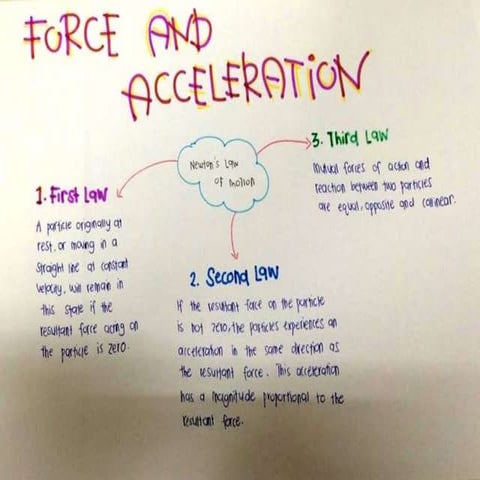 FORCE AND
ACCELERATION
Newton's Law
of motion
1. First Law
A particle originally at
rest, or moving in a
straight line at constant
velocity, will remain in
this state if the
resultant force acting on
the particle is zero.
2. Second Law
If the resultant force on the particle
is not zero, the particles experiences an
acceleration in the same direction as
the resultant force. This acceleration
has a magnitude proportional to the
resultant force.
3. Third Law
Mutual forces of action and
reaction between two particles
are equal, opposite and collinear.